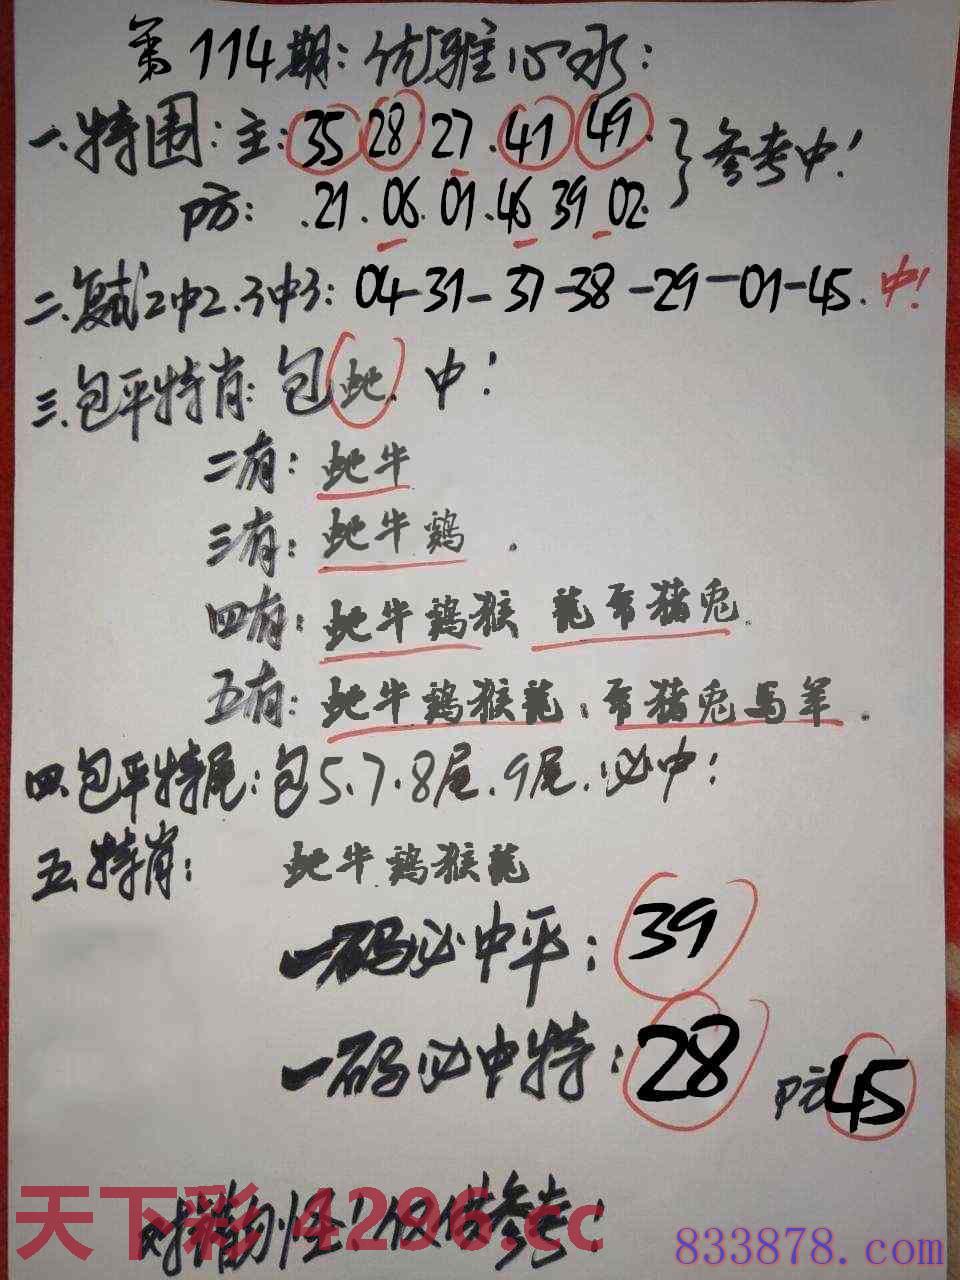 第114期:优雅心水:
一.特围:主:35 28.27.41 49.}参考中!
防:.21.06.01.46 39 02.
二.复试2中2.3中3:04-31-37-38-29-01-45.中!
三.包平特肖:包蛇.中!
二有:蛇牛
三有:蛇牛鸡.
四有:蛇牛鸡猴 龍 猪兔.
五有:蛇牛鸡猴龍、 猪兔馬羊.
四.包平特尾:包5.7.8尾.9尾.必中!
五.特肖: 蛇牛鸡猴龍
一码必中平:39
一码必中特:28 防45
天下彩 4296.cc
对错勿怪!仅供参考!
833878.com